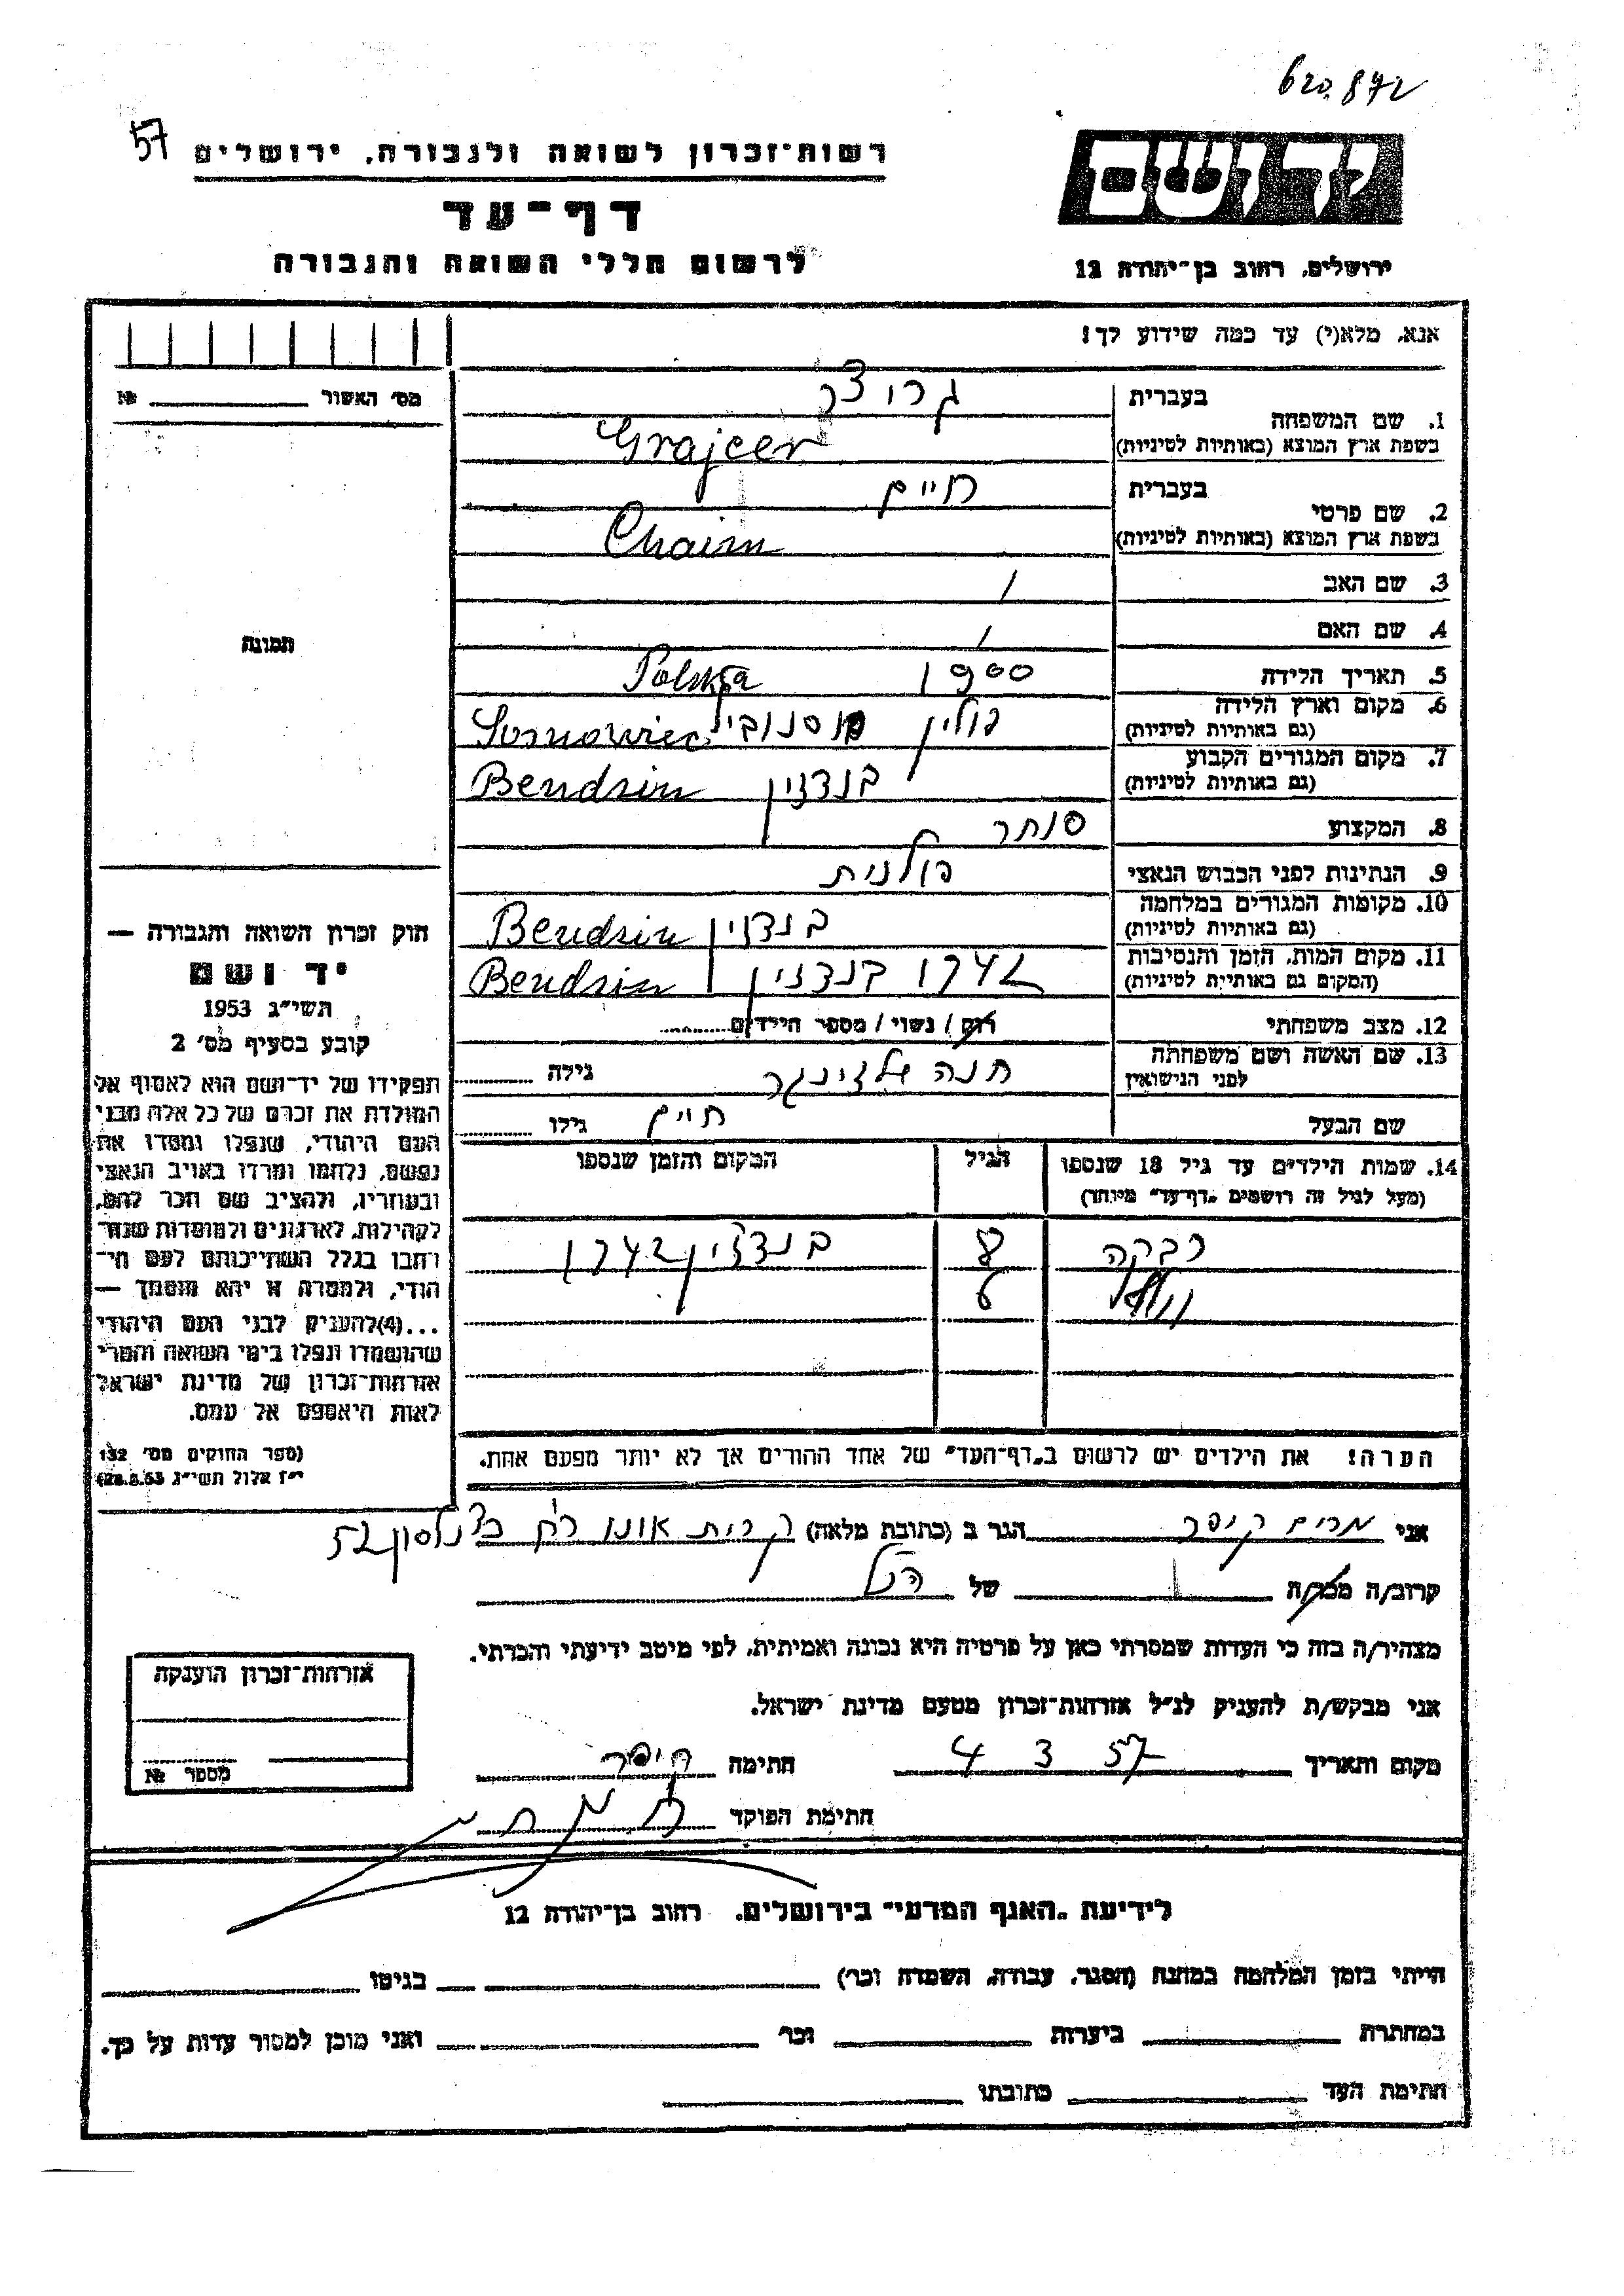 620.872
57
רשות־זכרון לשואה ולגבורה, ירושלים
יד ושם
דף־עד
לרשום חללי השואה והגבורה
ירושלים, רחוב בן־יהודה 12
אנא, מלא(י) עד כמה שידוע לך!
מס׳ האשור № 
1. שם המשפחה
בעברית
בשפת ארץ המוצא (באותיות לטיניות)
Grajcer
2. שם פרטי
בעברית חיים
בשפת ארץ המוצא (באותיות לטיניות) Chaim
3. שם האב /
4. שם האם /
תמונה
5. תאריך הלידה 1900 Polska
6. מקום וארץ הלידה (גם באותיות לטיניות) פולין Sosnowiec
7. מקום המגורים הקבוע (גם באותיות לטיניות) בנדזין Bendsin
8. המקצוע סוחר
9. הנתינות לפני הכבוש הנאצי פולנית
10. מקומות המגורים במלחמה (גם באותיות לטיניות) בנדזין Bendsin
11. מקום המות, הזמן והנסיבות (המקום גם באותיות לטיניות) 1942 בנדזין Bendsin
12. מצב משפחתי רווק / נשוי / מספר הילדים
13. שם האשה ושם משפחתה לפני הנישואין חנה גילה
שם הבעל חיים גילו
14. שמות הילדים עד גיל 18 שנספו
(מעל לגיל זה רושמים „דף־עד״ מיוחד)
הגיל
המקום והזמן שנספו
רבקה 8 בנדזין 1942
6
הערה! את הילדים יש לרשום ב„דף־העד״ של אחד ההורים אך לא יותר מפעם אחת.
חוק זכרון השואה והגבורה —
יד ושם
תשי״ג 1953
קובע בסעיף מס׳ 2
תפקידו של יד־ושם הוא לאסוף אל
המולדת את זכרם של כל אלה מבני
העם היהודי, שנפלו ומסרו את
נפשם, נלחמו ומרדו באויב הנאצי
ובעוזריו, ולהציב שם וזכר להם,
לקהילות, לארגונים ולמוסדות שנח־
רבו בגלל השתייכותם לעם הי־
הודי, ולמטרה זו יהא מוסמך —
...(4) להעניק לבני העם היהודי
שהושמדו ונפלו בימי השואה והמרי
אזרחות־זכרון של מדינת ישראל
לאות היאספם אל עמם.
(ספר החוקים מס׳ 132
י״ז אלול תשי״ג 28.8.53)
אני מרים קיפר הגר ב (כתובת מלאה) קרית אונו נלסון 52
קרוב/ה מכר/ה של הנ״ל
מצהיר/ה בזה כי העדות שמסרתי כאן על פרטיה היא נכונה ואמיתית, לפי מיטב ידיעתי והכרתי.
אני מבקש/ת להעניק לנ״ל אזרחות־זכרון מטעם מדינת ישראל.
מקום ותאריך 4 3 57 חתימה קיפר
חתימת הפוקד
אזרחות־זכרון הוענקה
מספר №
לידיעת „האגף המדעי״ בירושלים, רחוב בן־יהודה 12
הייתי בזמן המלחמה במחנה (הסגר, עבודה, השמדה וכו׳) בגיטו
במחתרת ביערות וכו׳ ואני מוכן למסור עדות על כך.
חתימת העד כתובתו